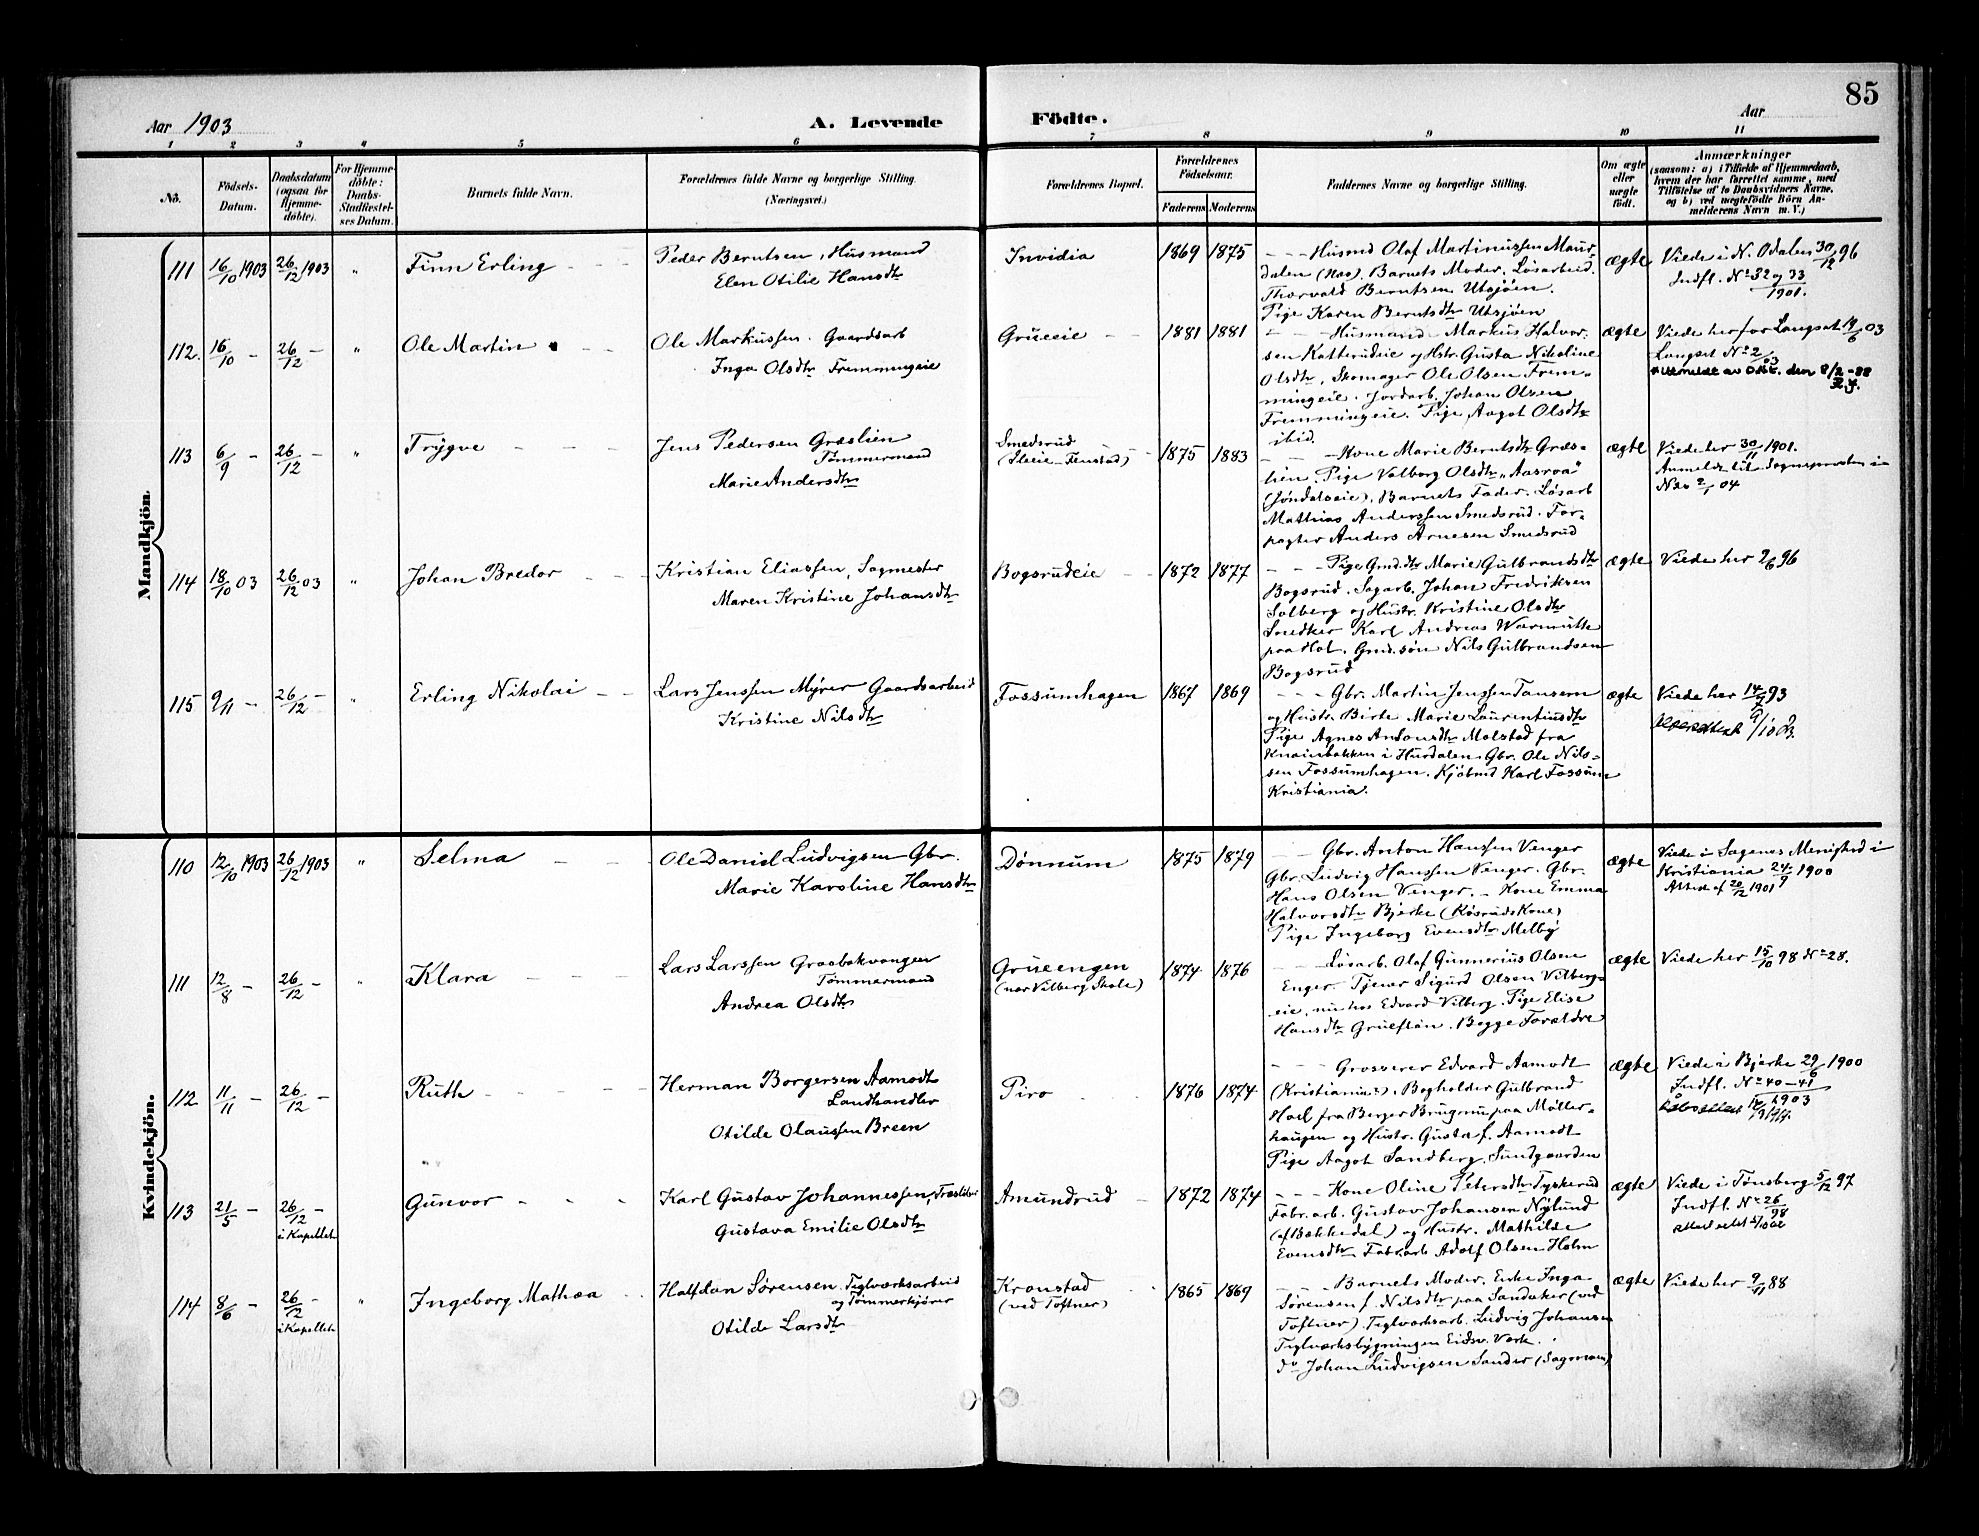 85
Aar 1903 A. Levende Födte. Aar
1 2 3 4 5 6 7 8 9 10 11
No. Födsels-Datum. Daabsdatum (ogsaa for Hjemmedöbte). For Hjemmedöbte: Daabs-Stadfæstelses Datum. Barnets fulde Navn. Forældrenes fulde Navne og borgerlige Stilling. (Næringsvei.) Forældrenes Bopæl. Forældrenes Födselsaar. Faderens Moderens Faddernes Navne og borgerlige Stilling. Om ægte eller uægte født. Anmærkninger (saasom: a) i Tilfælde af Hjemmedaab, hvem der har forrettet samme, med Tilföielse af to Daabsvidners Navne, og b) ved uægtefödte Börn Anmelderens Navn m. V.)
Mandkjön.
111 16/10 1903 26/12 1903 " Finn Erling
Peder Berntsen, Husmand
Elen Otilie Hansdtr
Invidia 1869 1875
Husmd Olaf Martinussen Maur-
dalen (Næs). Barnets Moder. Løsarbeid.
Thorvald Berntsen Utsjöen.
Pige Karen Berntsdtr Utsjöen
ægte
Viede i N. Odalen 30/12 96
Indfl. No 32 og 33
1901.
112. 16/10 – 26/12 – " Ole Martin
Ole Markussen Gaardsarb
Inga Olsdtr Fremmingeie
Grüeeie 1881 1881
Husmand Markus Halvor-
sen Katterudeie og Hstr. Gusta Nikoline
Olsdtr, Skomager Ole Olsen Frem-
mingeie. Jordarb. Johan Olsen
Fremmingeie. Pige Aagot Olsdtr
ibid.
ægte
Viede her for Langset 14/6 03
Langset No 2/03
Utmeldt av den 8/2-88
113 6/9 – 26/12 – " Trÿgve
Jens Pedersen Græslien
Tømmermand
Marie Andersdtr
Smedsrud
(Sleie-Finstad) 1875 1883
Kone Marie Berntsdtr Græs-
lien. Pige Valborg Olsdtr "Aasroa"
(Jöndalseie), Barnets Fader. Løsarb
Mathias Anderssen Smedsrud. For-
pagter Anders Arnesen Smedsrud
ægte
Viede her 30/11 1901.
Anmeldt til Sognepresten i
Næs 2/1 04
114 18/10 03 26/12 03 " Johan Bredor
Kristian Eliassen, Sagmester
Maren Kristine Johansdtr
Bogsrudeie 1872 1877
Pige Gmd.dtr Marie Gulbrandsdtr
Bogsrud. Sagarb. Johan Fredriksen
Sölberg og Hustr. Kristine Olsdtr
Snedker Karl Andreas Warmuth
paa Hol. Gmd.søn Nils Gulbrandsen
Bogsrud
ægte
Viede her 2/6 96
115 9/11 – 26/12 – Erling Nikolai
Lars Jenssen Mÿrer Gaardsarbeid
Kristine Nilsdtr
Fossumhagen 1867 1869
Gbr. Martin Jenssen Tansem
og Hustr. Birte Marie Laurentiusdtr
Pige Agnes Antonsdtr Molstad fra
Knaisbakken i Hurdalen. Gbr. Ole Nils-
sen Fossumhagen. Kjöbmd Karl Fossum
Kristiania.
ægte
Viede her 14/7 93
Kvindekjön.
110 12/10 1903 26/12 1903 " Selma
Ole Daniel Ludvigsen Gbr.
Marie Karoline Hansdtr
Dønnum 1875 1879
Gbr. Anton Hanssen Venger
Gbr. Ludvig Hanssen Venger. Gbr.
Hans Olsen Venger. – Kone Emma
Halvorsdtr Bjerke (Røsruds Kone)
Pige Ingeborg Evensdtr Melbÿ
ægte
Viede i Sagenes Menighed i
Kristiania 24/9 1900
Attest af 20/12 1901
111 12/8 – 26/12 – " Klara
Lars Larssen Graabakvangen
Tømmermand
Andrea Olsdtr
Grüeengen
(nær Vilberg Skole) 1874 1876
Løsarb. Olaf Gunnerius Olsen
Enger. Tjener Sigurd Olsen Vilberg-
eie, nu hos Edvard Vilberg. Pige Elise
Hansdtr Grueflan. Begge Forældre
ægte
Viede her 15/10 98 No 28.
112 11/11 – 26/12 – Ruth
Herman Borgersen Aamodt
Landhandler
Otilde Olaussen Breen
Piro 1876 1874
Grosserer Edvard Aamodt
(Kristiania). Bogholder Gulbrand
Hoel fra Berger Brugmu paa Möller-
haugen og Hustr. Gusta f. Aamodt
Pige Aagot Sandberg, Sundgaarden
ægte
Viede i Bjerke 29/6 1900
Indfl. No 40–41
1903
113 21/5 – 26/12 – i Kapellet Gunvor
Karl Gustav Johannessen, Træsliber
Gustava Emilie Olsdtr
Amundrud 1872 1874
Kone Oline Petersdtr Tyskerud
Fabr.arb. Gustav Johansen Nÿlund
(af Bækkedal) og Hustr. Mathilde
Evensdtr. Fabr.arb Adolf Olsen Holm
ægte
Viede i Tønsberg 5/12 97
Indfl. No 26/98
114 8/6 – 26/12 – i Kapellet " Ingeborg Mathea
Halfdan Sørensen. Teglværksarbeid
og Tømmerkjører
Otilde Larsdtr
Kronstad
(ved Toftner) 1865 1869
Barnets Moder. Enke Inga
Sørensen f. Nilsdtr paa Sandaker (ved
Toftner). Teglværksarb. Ludvig Johansen
Teglværksbÿgningen Eidsv. Værk.
Do Johan Ludvigsen Sander (Sagmoen)
ægte
Viede her 9/11 88